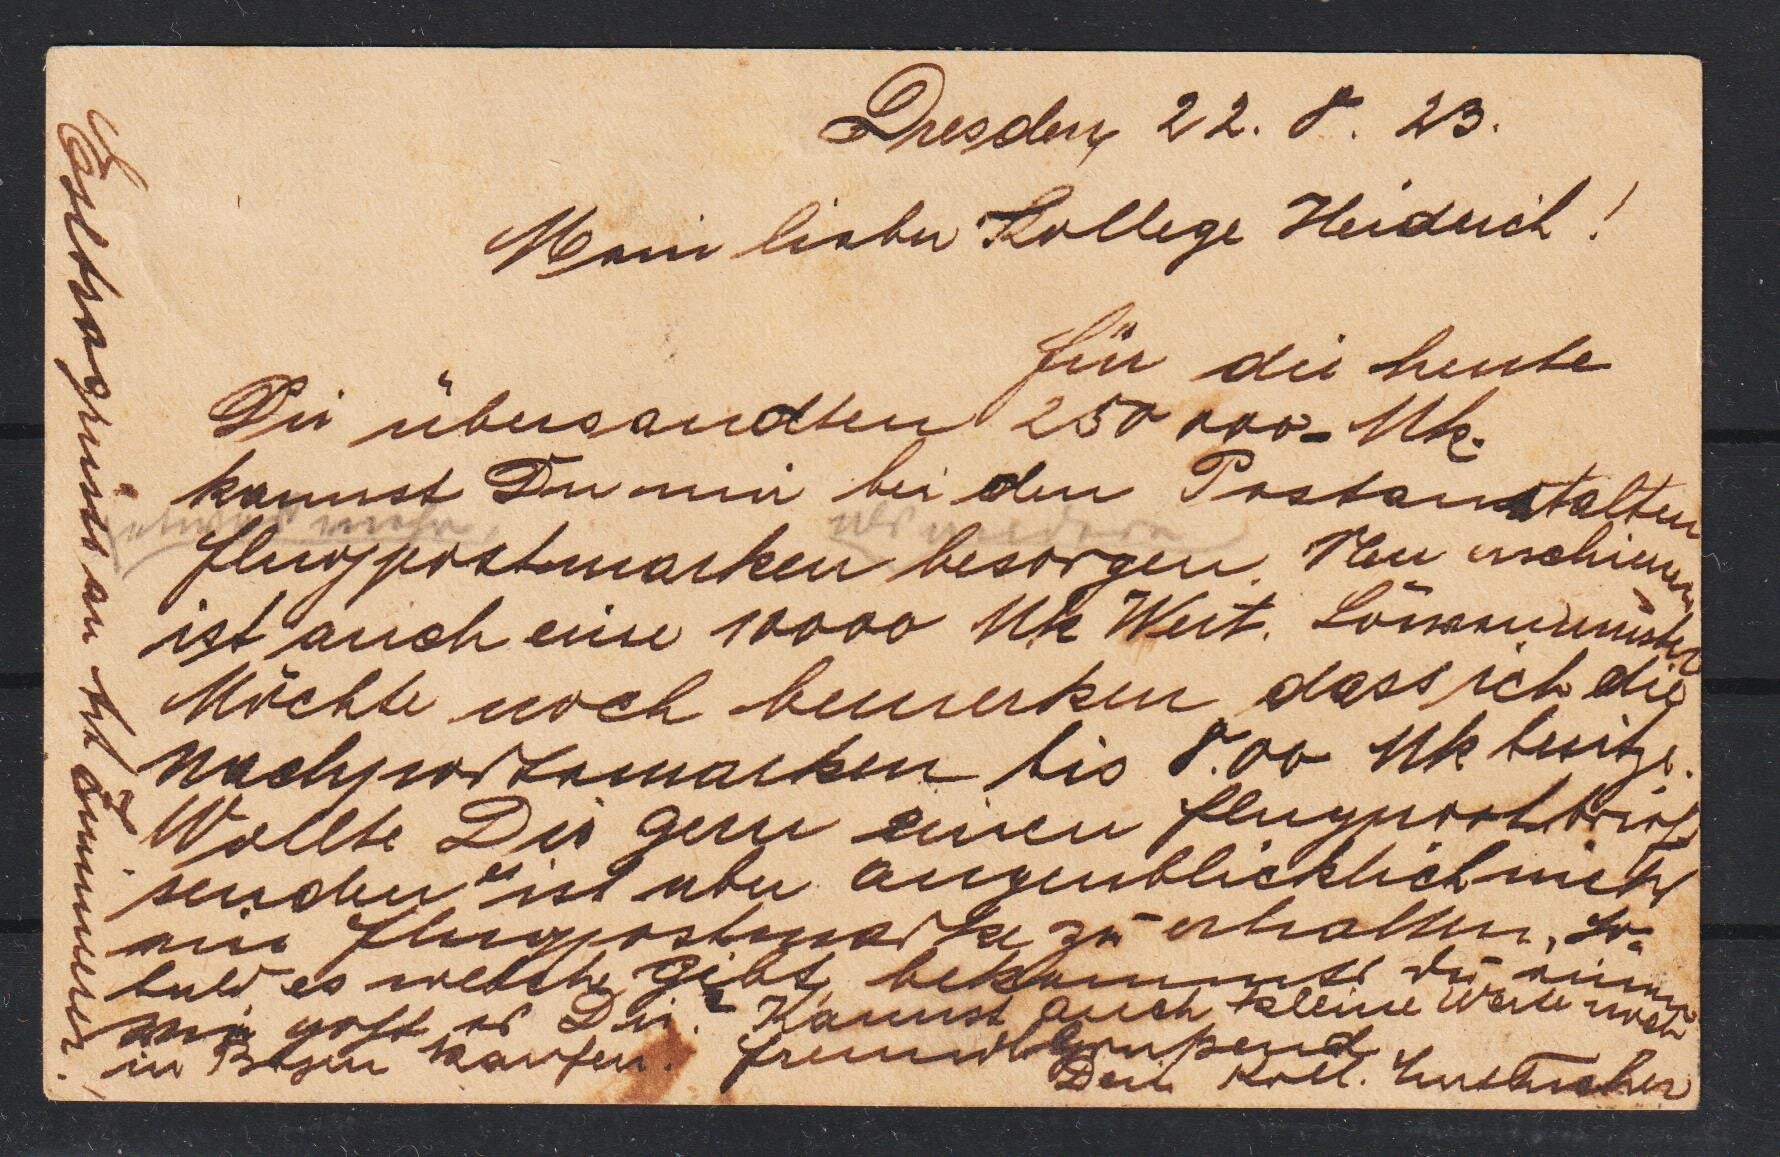 Dresden, 22. 8. 23.
Mein lieber Kollege Heiderich!
für die heute
Dir übersandten 250 000 Mk.
kannst Du mir bei den Postanstalten
etwas mehr, als andere
flugpostmarken besorgen. Neu erschienen
ist auch eine 10000 Mk Wert.
Möchte noch bemerken dass ich die
Nachportomarken bis 8.00 Mk besitze.
Wollte Dir gern einen flugpostbrief
senden es ist aber augenblicklich nicht
eine flugpostmarke zu erhalten, So-
bald es welche gibt, bekommst du einen
Dir. Kannst auch kleine Werte noch
in Bogen kaufen. freundlgrüßend
Dein Koll.
an